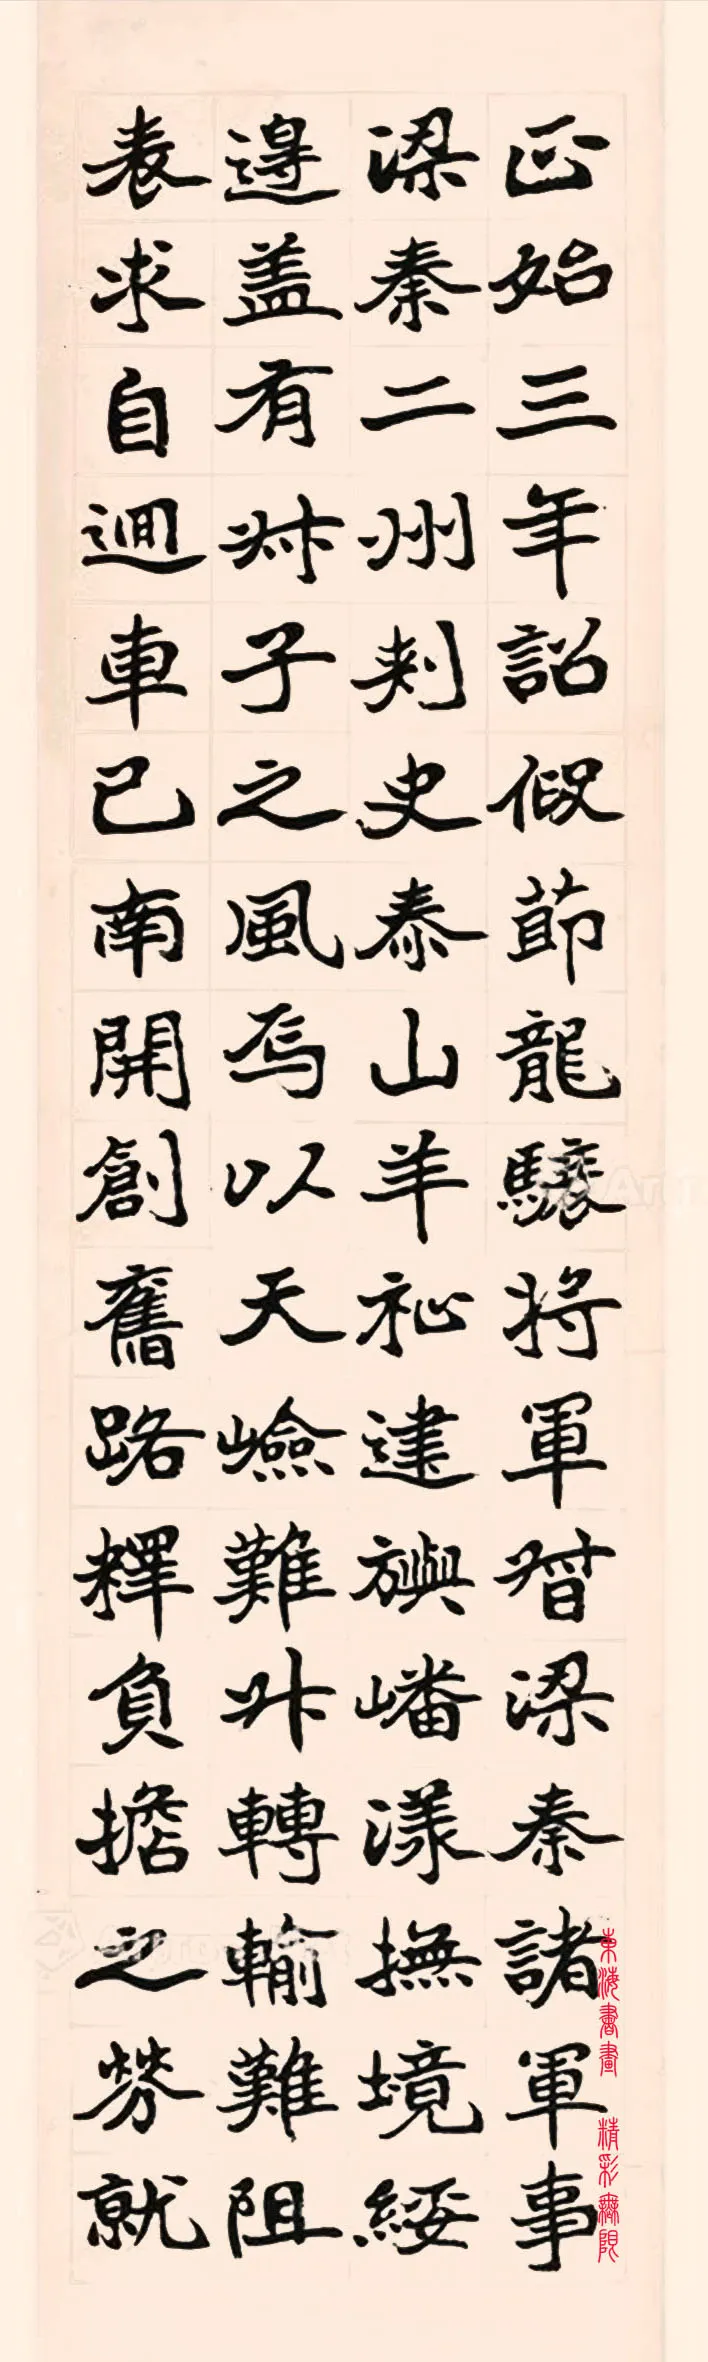 正始三年詔假節龍驤將軍督梁秦諸軍事
梁秦二州刺史泰山羊祉建旟嶓漾撫境綏
邊盖有叔子之風焉以天嶮難升轉輸難阻
表求自迴車已南開創舊路釋負擔之勞就
東海書畫 精彩無限